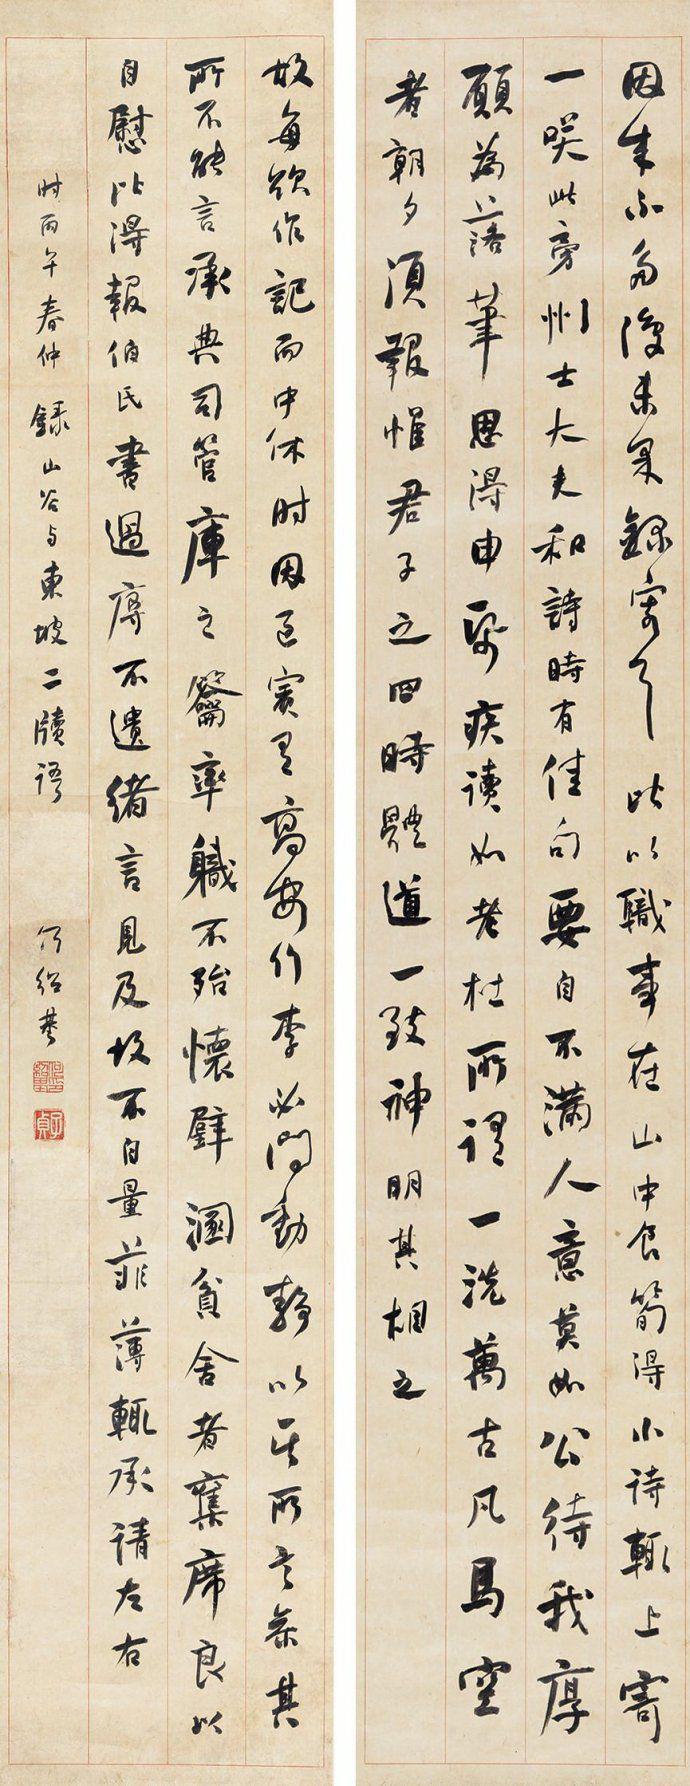 因來不多復未果錄寄耳此以職事在山中食筍得小詩輒上寄
一笑此旁州士大夫和詩時有佳句要自不滿人意莫如公待我厚
願為落筆思得申紙疾讀如老杜所謂一洗萬古凡馬空
者朝夕須報惟君子之四時體道一致神明其相之
故每欲作記而中休时因過賓見高安行李必問動靜以其所言参其
所不能言承典司管庫之籥率軄不殆懷璧溷貧舍者奪席良以
自慰比得報伯氏書過辱不遺緒言見及故不自量菲薄輒承請左右
时丙午春仲錄山谷与東坡二牘語
何紹基
何紹基印
子貞